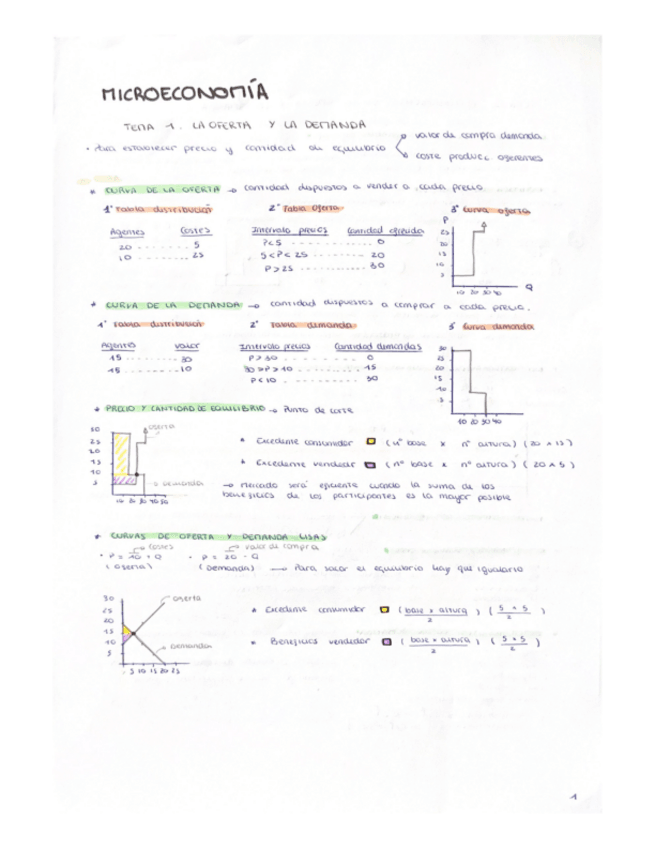 MICROECONOMÍA
TEMA 1. LA OFERTA Y LA DEMANDA
• Para establecer precio y cantidad de equilibrio
valor de compra demanda
coste produce oferentes
* CURVA DE LA OFERTA → cantidad dispuestos a vender a cada precio.
1º Tabla distribución 2º Tabla Oferta 3º Curva oferta
Agentes Costes Intervalo precios Cantidad ofrecida
20 - - - - - - - - 5 P<5 - - - - - - - - 0
10 - - - - - - - - 25 5<P<25 - - - - - - - - 20
P>25 - - - - - - - - 30
P
25
20
15
10
5
10 20 30 40 Q
* CURVA DE LA DEMANDA → cantidad dispuestos a comprar a cada precio.
1º Tabla distribución 2º Tabla demanda 3º Curva demanda
Agentes Valor Intervalo precio Cantidad demandas
15 - - - - - - - - 30 P>30 - - - - - - - - 0
15 - - - - - - - - 10 30>P>10 - - - - - - - - 15
P<10 - - - - - - - - 30
30
25
20
15
10
5
10 20 30 40
* PRECIO Y CANTIDAD DE EQUILIBRIO → Punto de corte
30
25
20
15
10
5
oferta
demanda
10 20 30 40 50
* Excedente consumidor (nº base x nº altura) (20 x 15)
* Excedente vendedor (nº base x nº altura) (20 x 5)
→ Mercado será eficiente cuando la suma de los
beneficios de los participantes es la mayor posible
* CURVAS DE OFERTA Y DEMANDA LISAS
costes valor de compra
• P = 10 + Q • P = 20 - Q
(Oferta) (Demanda) → Para sacar el equilibrio hay que igualarlo
30
25
20
15
10
5
oferta
Demanda
5 10 15 20 25
* Excedente consumidor (base x altura / 2) (5 x 5 / 2)
* Beneficios vendedor (base x altura / 2) (5 x 5 / 2)
1